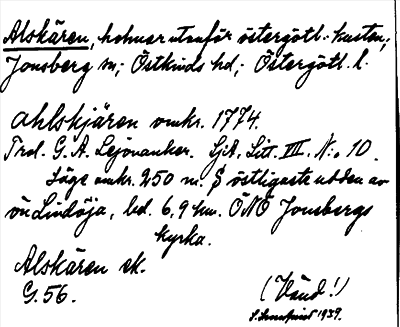 Alskären, holmar utanför östergötl. kusten,
Jonsberg sn; Östkinds hd; Östergötl. l.
Ahlskjären omkr. 1774.
Trol. G. A. Lejonanker. SjA, Litt. III. N:o 10.
Läge omkr. 250 m. S östligaste udden av
ön Lindöja, bel. 6,9 km. ÖNÖ Jonsbergs
kyrka.
Alskären ek.
G. 56.
(Vänd!)
1939.